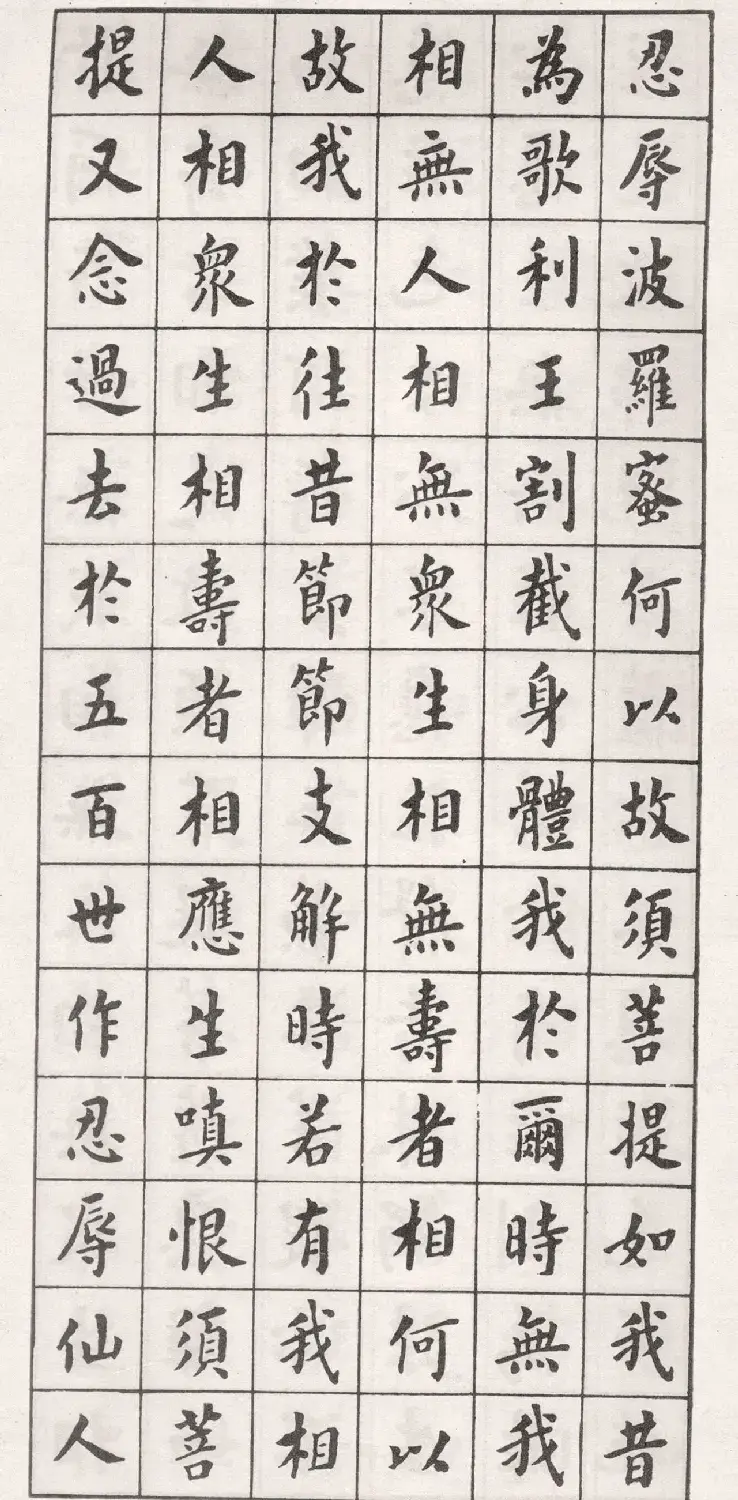 忍辱波羅蜜何以故須菩提如我昔
為歌利王割截身體我於爾時無我
相無人相無衆生相無壽者相何以
故我於往昔節節支解時若有我相
人相衆生相壽者相應生嗔恨須菩
提又念過去於五百世作忍辱仙人